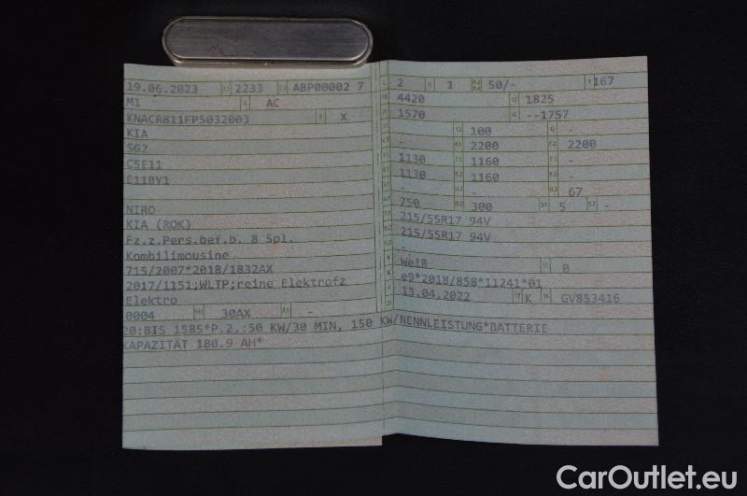 19.06.2023 2233 ABP00002 7
M1 AC
KNACR811FP5032003 X
KIA
SG2
C5E11
E11BY1
NIRO
KIA (ROK)
Fz.z.Pers.bef.b. 8 Spl.
Kombilimousine
715/2007*2018/1832AX
2017/1151;WLTP;reine Elektrofz
Elektro
0004 30AX -
2 1 50/- 167
4420 1825
1570 --1757
- 100 -
- 2200 2200
1130 1160 -
1130 1160 -
- - 67
750 300 5 -
215/55R17 94V
215/55R17 94V
-
Weiß 0
e9*2018/858*11241*01
13.04.2022 K GV853416
20:BIS 1585*P.2.:50 KW/30 MIN, 150 KW/NENNLEISTUNG*BATTERIE
KAPAZITÄT 180.9 AH*
CarOutlet.eu